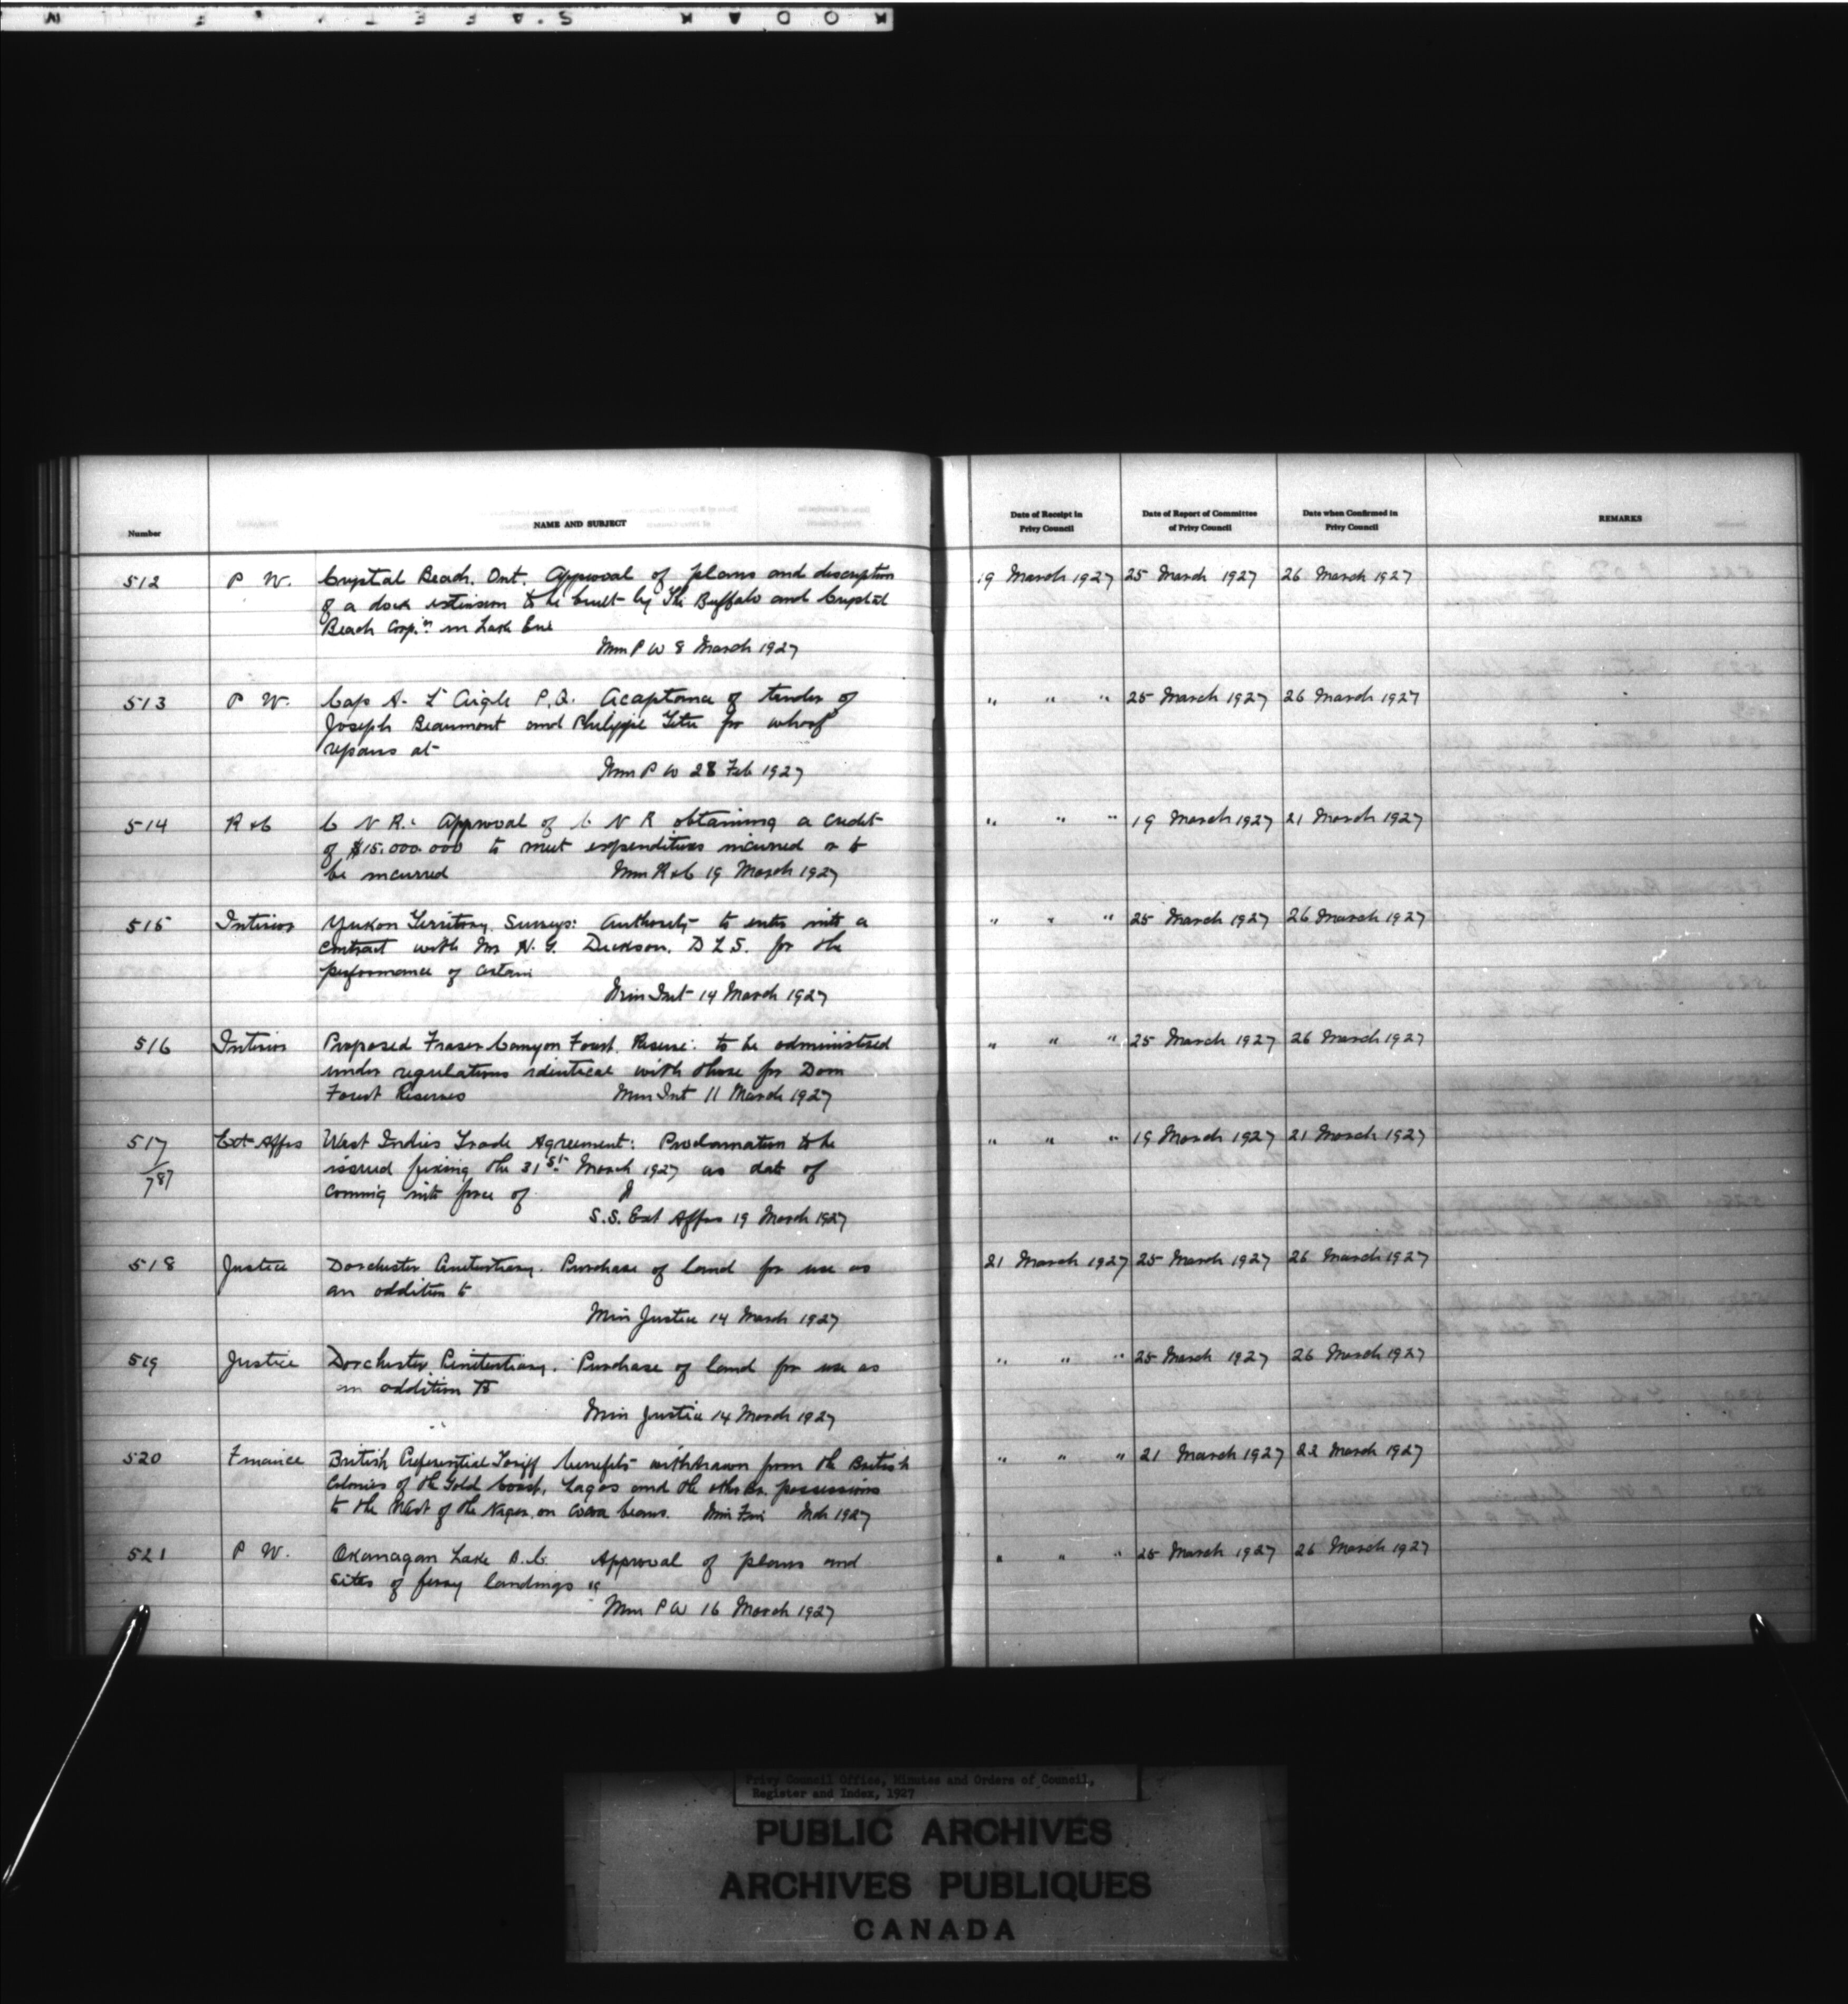 KODAK SAFETY FILM
Number
NAME AND SUBJECT
Date of Receipt in Privy Council
Date of Report of Committee of Privy Council
Date when Confirmed in Privy Council
REMARKS
512 P W. Crystal Beach. Ont. Approval of plans and description 19 March 1927 25 March 1927 26 March 1927
of a dock extension to be built by The Buffalo and Crystal
Beach Corp.n in Lake Erie
Min P W 8 March 1927
513 P W. Cap A. L'Aigle P.Q. Acaptance of tender of " " " 25 March 1927 26 March 1927
Joseph Beaumont and Philippe for wharf
repairs at
Min P W 28 Feb 1927
514 R & C C N R: Approval of C N R obtaining a credit " " " 19 March 1927 21 March 1927
of $15.000.000 to meet expenditures incurred or to
be incurred Min R & C 19 March 1927
515 Interior Yukon Territory Surveys: Authority to enter into a " " " 25 March 1927 26 March 1927
contract with Mr H. G. Dickson. D L S. for the
performance of certain
Min Int 14 March 1927
516 Interior Proposed Fraser Canyon Forest Reserve: to be administered " " " 25 March 1927 26 March 1927
under regulations identical with those for Dom
Forest Reserves Min Int 11 March 1927
517 Ext Affrs West Indies Trade Agreement: Proclamation to be " " " 19 March 1927 21 March 1927
/787 issued fixing the 31st March 1927 as date of
coming into force of
S.S. Ext Affrs 19 March 1927
518 Justice Dorchester Penitentiary. Purchase of land for use as 21 March 1927 25 March 1927 26 March 1927
an addition to
Min Justice 14 March 1927
519 Justice Dorchester Penitentiary. Purchase of land for use as " " " 25 March 1927 26 March 1927
an addition to
Min Justice 14 March 1927
520 Finance British Preferential Tariff benefits withdrawn from the British " " " 21 March 1927 22 March 1927
Colonies of the Gold Coast, Lagos and the other Br. possessions
to the West of the Niger, on cocoa beans. Min Fin Mch 1927
521 P W. Okanagan Lake B.C. Approval of plans and " " " 25 March 1927 26 March 1927
sites of ferry landings "
Min P W 16 March 1927
Privy Council Office, Minutes and Orders of Council,
Register and Index, 1927
PUBLIC ARCHIVES
ARCHIVES PUBLIQUES
CANADA